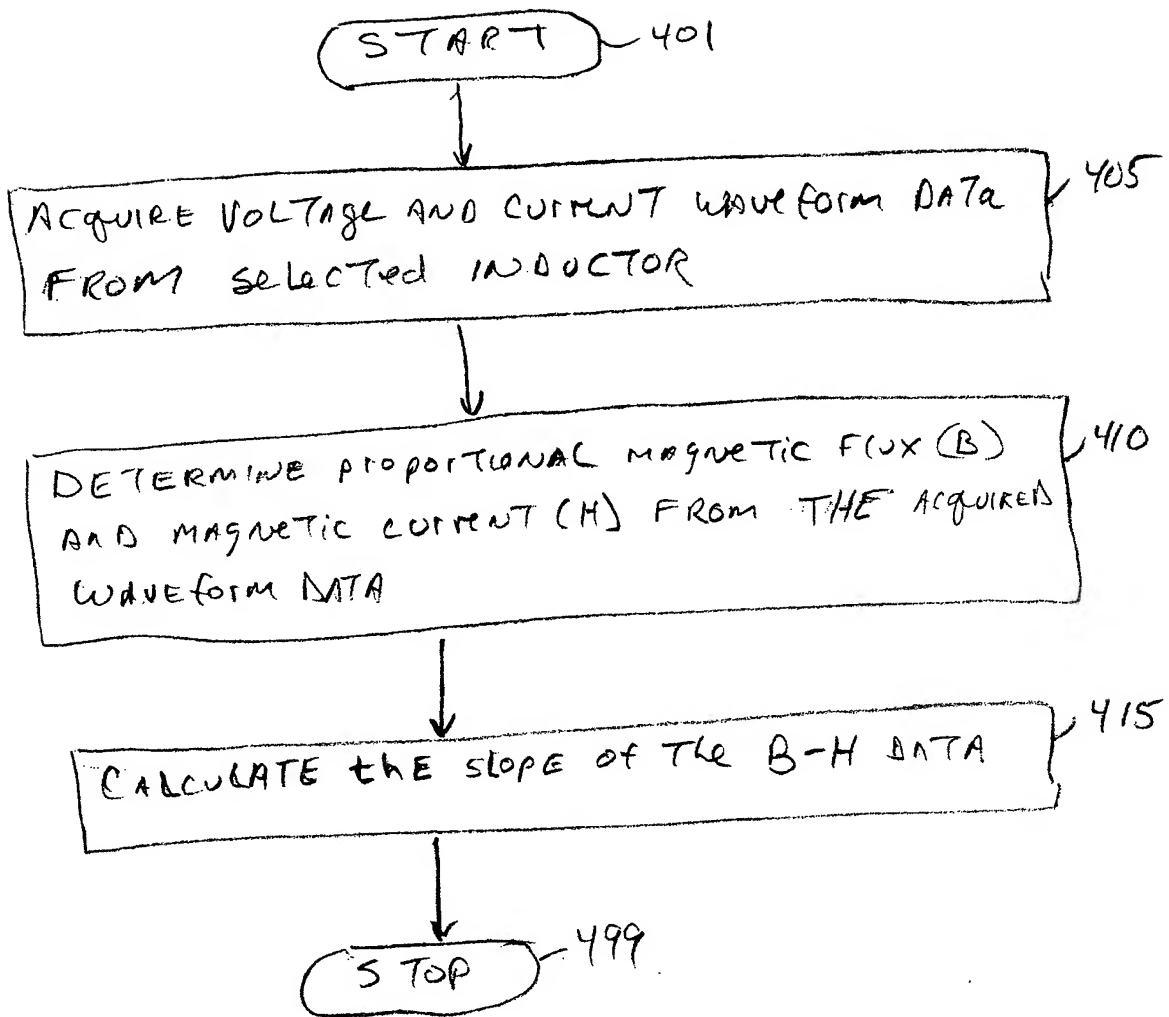 START 401
ACQUIRE VOLTAGE AND CURRENT WAVEFORM DATA 405
FROM SELECTED INDUCTOR
DETERMINE PROPORTIONAL MAGNETIC FLUX (B) 410
AND MAGNETIC CURRENT (H) FROM THE ACQUIRED
WAVEFORM DATA
CALCULATE THE SLOPE OF THE B-H DATA 415
STOP 499